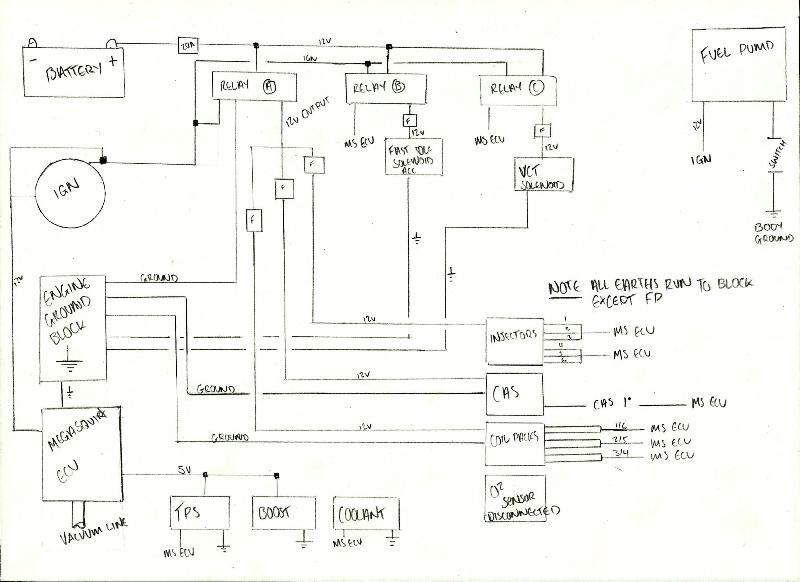 - +
BATTERY
20A
12V
IGN
RELAY A
RELAY B
RELAY C
FUEL PUMP
12V OUTPUT
MS ECU
F
12V
FAST IDLE
SOLENOID
ACC
MS ECU
F
12V
VCT
SOLENOID
12V
IGN
SWITCH
BODY
GROUND
IGN
F
F
F
12V
ENGINE
GROUND
BLOCK
GROUND
NOTE ALL EARTHS RUN TO BLOCK
EXCEPT FP
12V
INJECTORS
1
2
3
MS ECU
MS ECU
12V
GROUND
CAS
CAS 1°
MS ECU
12V
GROUND
COIL PACKS
1/6 MS ECU
2/5 MS ECU
3/4 MS ECU
MEGASQUIRT
ECU
5V
VACUUM LINE
TPS
BOOST
COOLANT
MS ECU
MS ECU
O2
SENSOR
DISCONNECTED